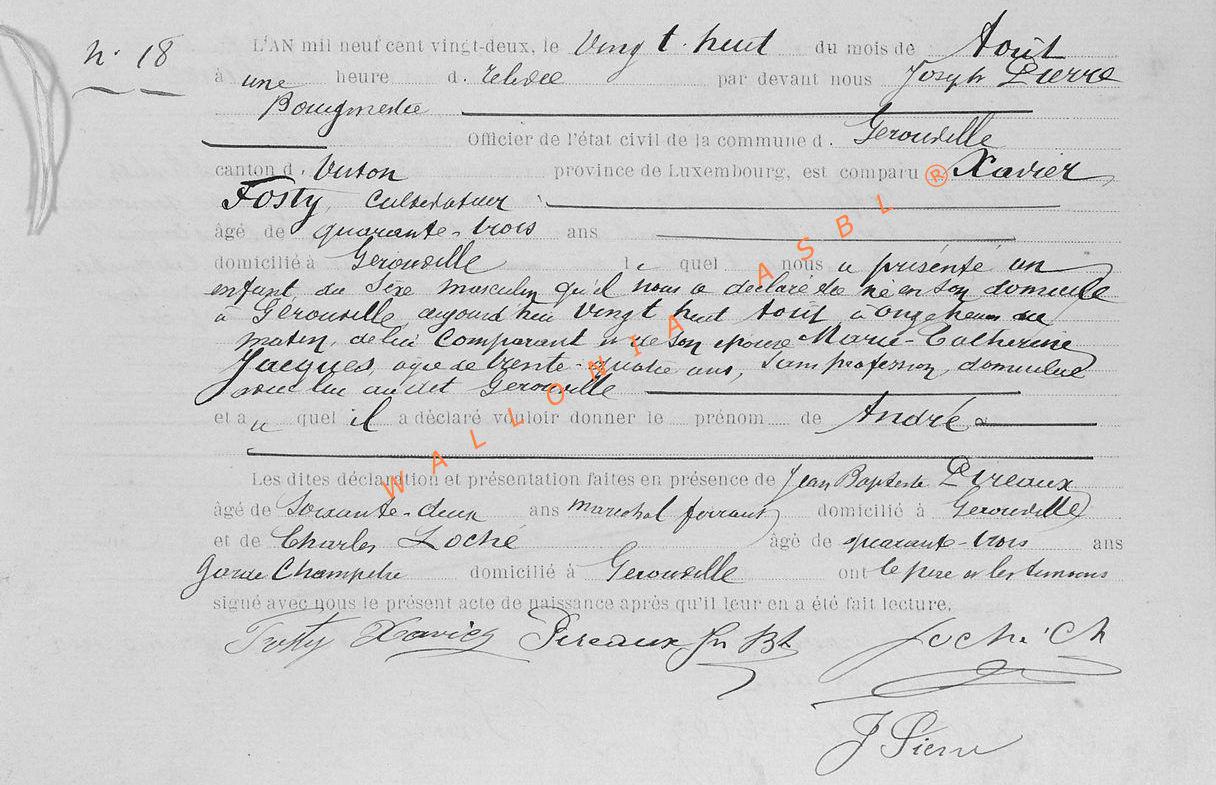 N° 18
L'AN mil neuf cent vingt-deux, le Vingt-huit du mois de Août
à une heure d. relevée par devant nous Joseph Pierre
Bourgmestre
Officier de l'état civil de la commune d. Gerouville
canton d. Virton province de Luxembourg, est comparu Xavier
Fosty, Cultivateur
âgé de quarante-trois ans
domicilié à Gerouville le quel nous a présenté un
enfant du sexe masculin qu'il nous a déclaré être né en son domicile
à Gerouville, aujourd'hui Vingt huit Août à onze heures du
matin, de lui Comparant et de son épouse Marie-Catherine
Jacques, agée de trente-quatre ans, sans profession, domiciliée
avec lui audit Gerouville
et au quel il a déclaré vouloir donner le prénom de André
Les dites déclaration et présentation faites en présence de Jean Baptiste Pireaux
âgé de Soixante-deux ans maréchal ferrant domicilié à Gerouville
et de Charles Loché âgé de quarante-trois ans
Garde Champêtre domicilié à Gerouville ont le père et les témoins
signé avec nous le présent acte de naissance après qu'il leur en a été fait lecture.
Fosty Xavier Pireaux Jn Bt Loché Ch
J Pierre
WALLONIA ASBL ®